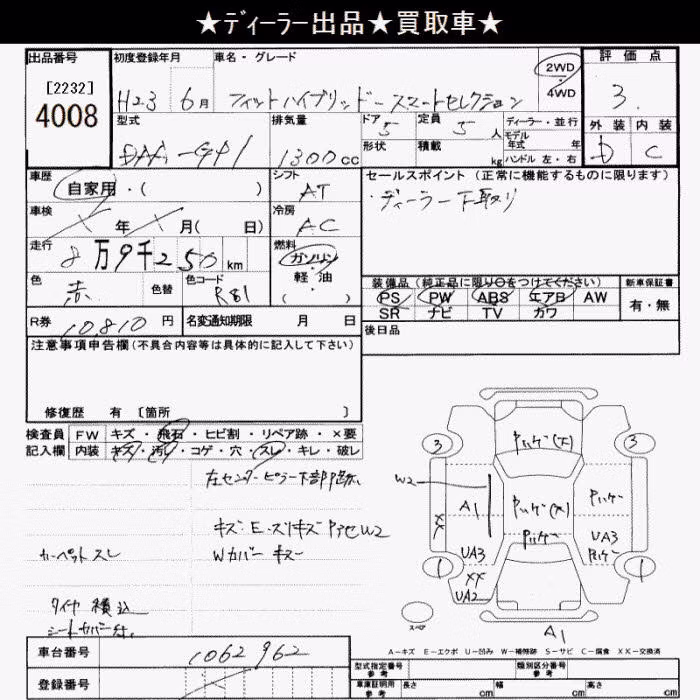 ★ディーラー出品★買取車★
出品番号 初度登録年月 車名・グレード 2WD・4WD 評価点
[2232]
4008
H23 6月 フィットハイブリッド スマートセレクション 3.
型式 排気量 ドア 定員 ディーラー・並行 外装 内装
DAA-GP1 1300cc 5 5人 モデル年式 年 D C
形状 積載 kg ハンドル 左・右
車歴 シフト セールスポイント (正常に機能するものに限ります)
自家用・( ) AT ・ディーラー下取り
車検 冷房
X年X月( 日) AC
走行 燃料
8万9千250km ガソリン・軽油
色 色替 色コード ( )
赤 R81
装備品(純正品に限り○をつけてください) 新車保証書
PS PW ABS エアB AW 有・無
SR ナビ TV カワ
R券 10,810円 名変通知期限 月 日
後日品
注意事項申告欄(不具合内容等は具体的に記入して下さい)
修復歴 有 [箇所 ]
検査員 FW キズ・飛石・ヒビ割・リペア跡・×要
記入欄 内装 キズ・汚れ・コゲ・穴・スレ・キレ・破レ
左センターピラー下部
キズ・E・スリキズ W2
カーペットスレ Wカバーキズ
タイヤ積込
シートカバー付
3 3
W2
A1
XX
UA3 UA3
XX
UA2
1 1
スペア
A1
A-キズ E-エクボ U-凹み W-補修跡 S-サビ C-腐食 XX-交換済
車台番号 1062962
登録番号
型式指定番号 参考 類別区分番号 参考
車庫証明用 参考 長さ cm 幅 cm 高さ cm